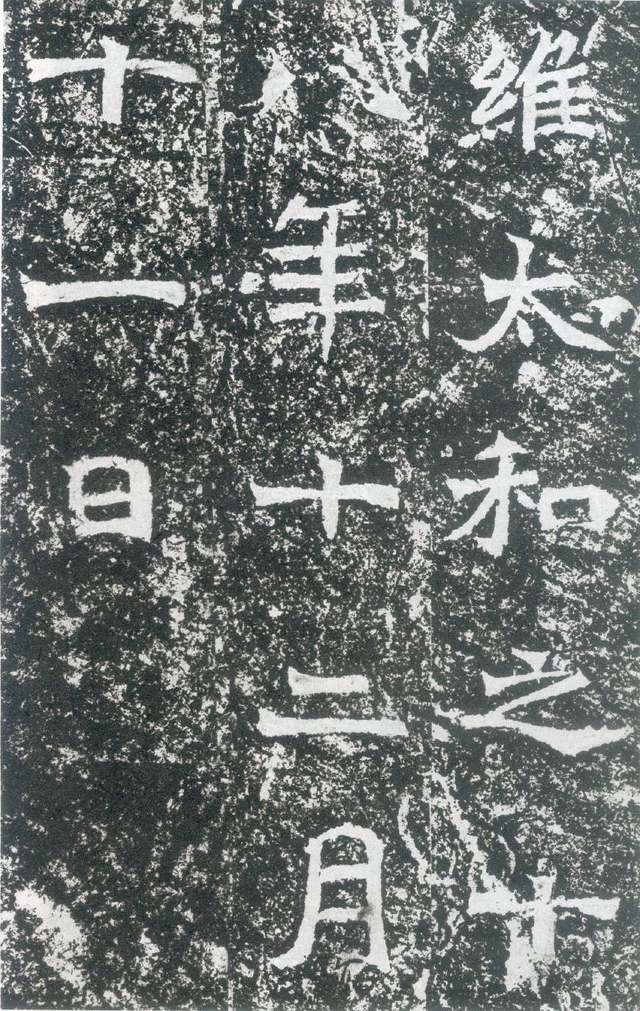 維太和之十
八年十二月
十一日